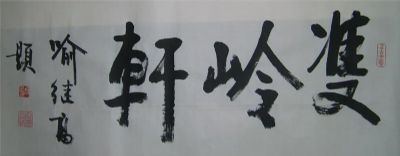 隻岭軒
喻继高
題